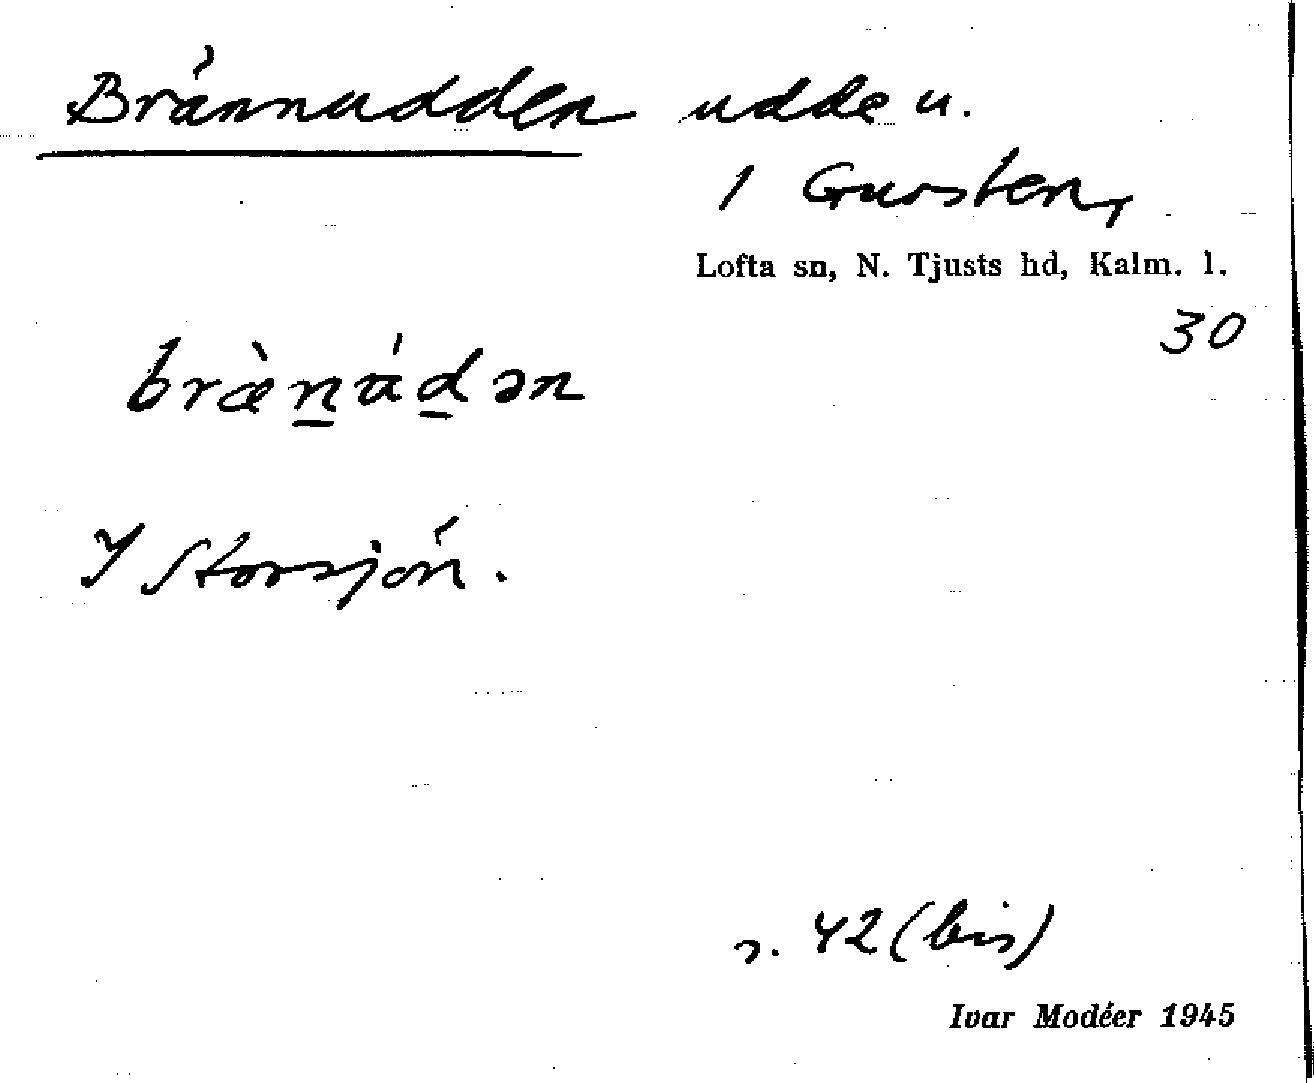 Brännudden udde u.
1 Gursten,
Lofta sn, N. Tjusts hd, Kalm. l.
30
bræ̀n̲ád̲ən
I Storsjön.
s. 42 (bis)
Ivar Modéer 1945